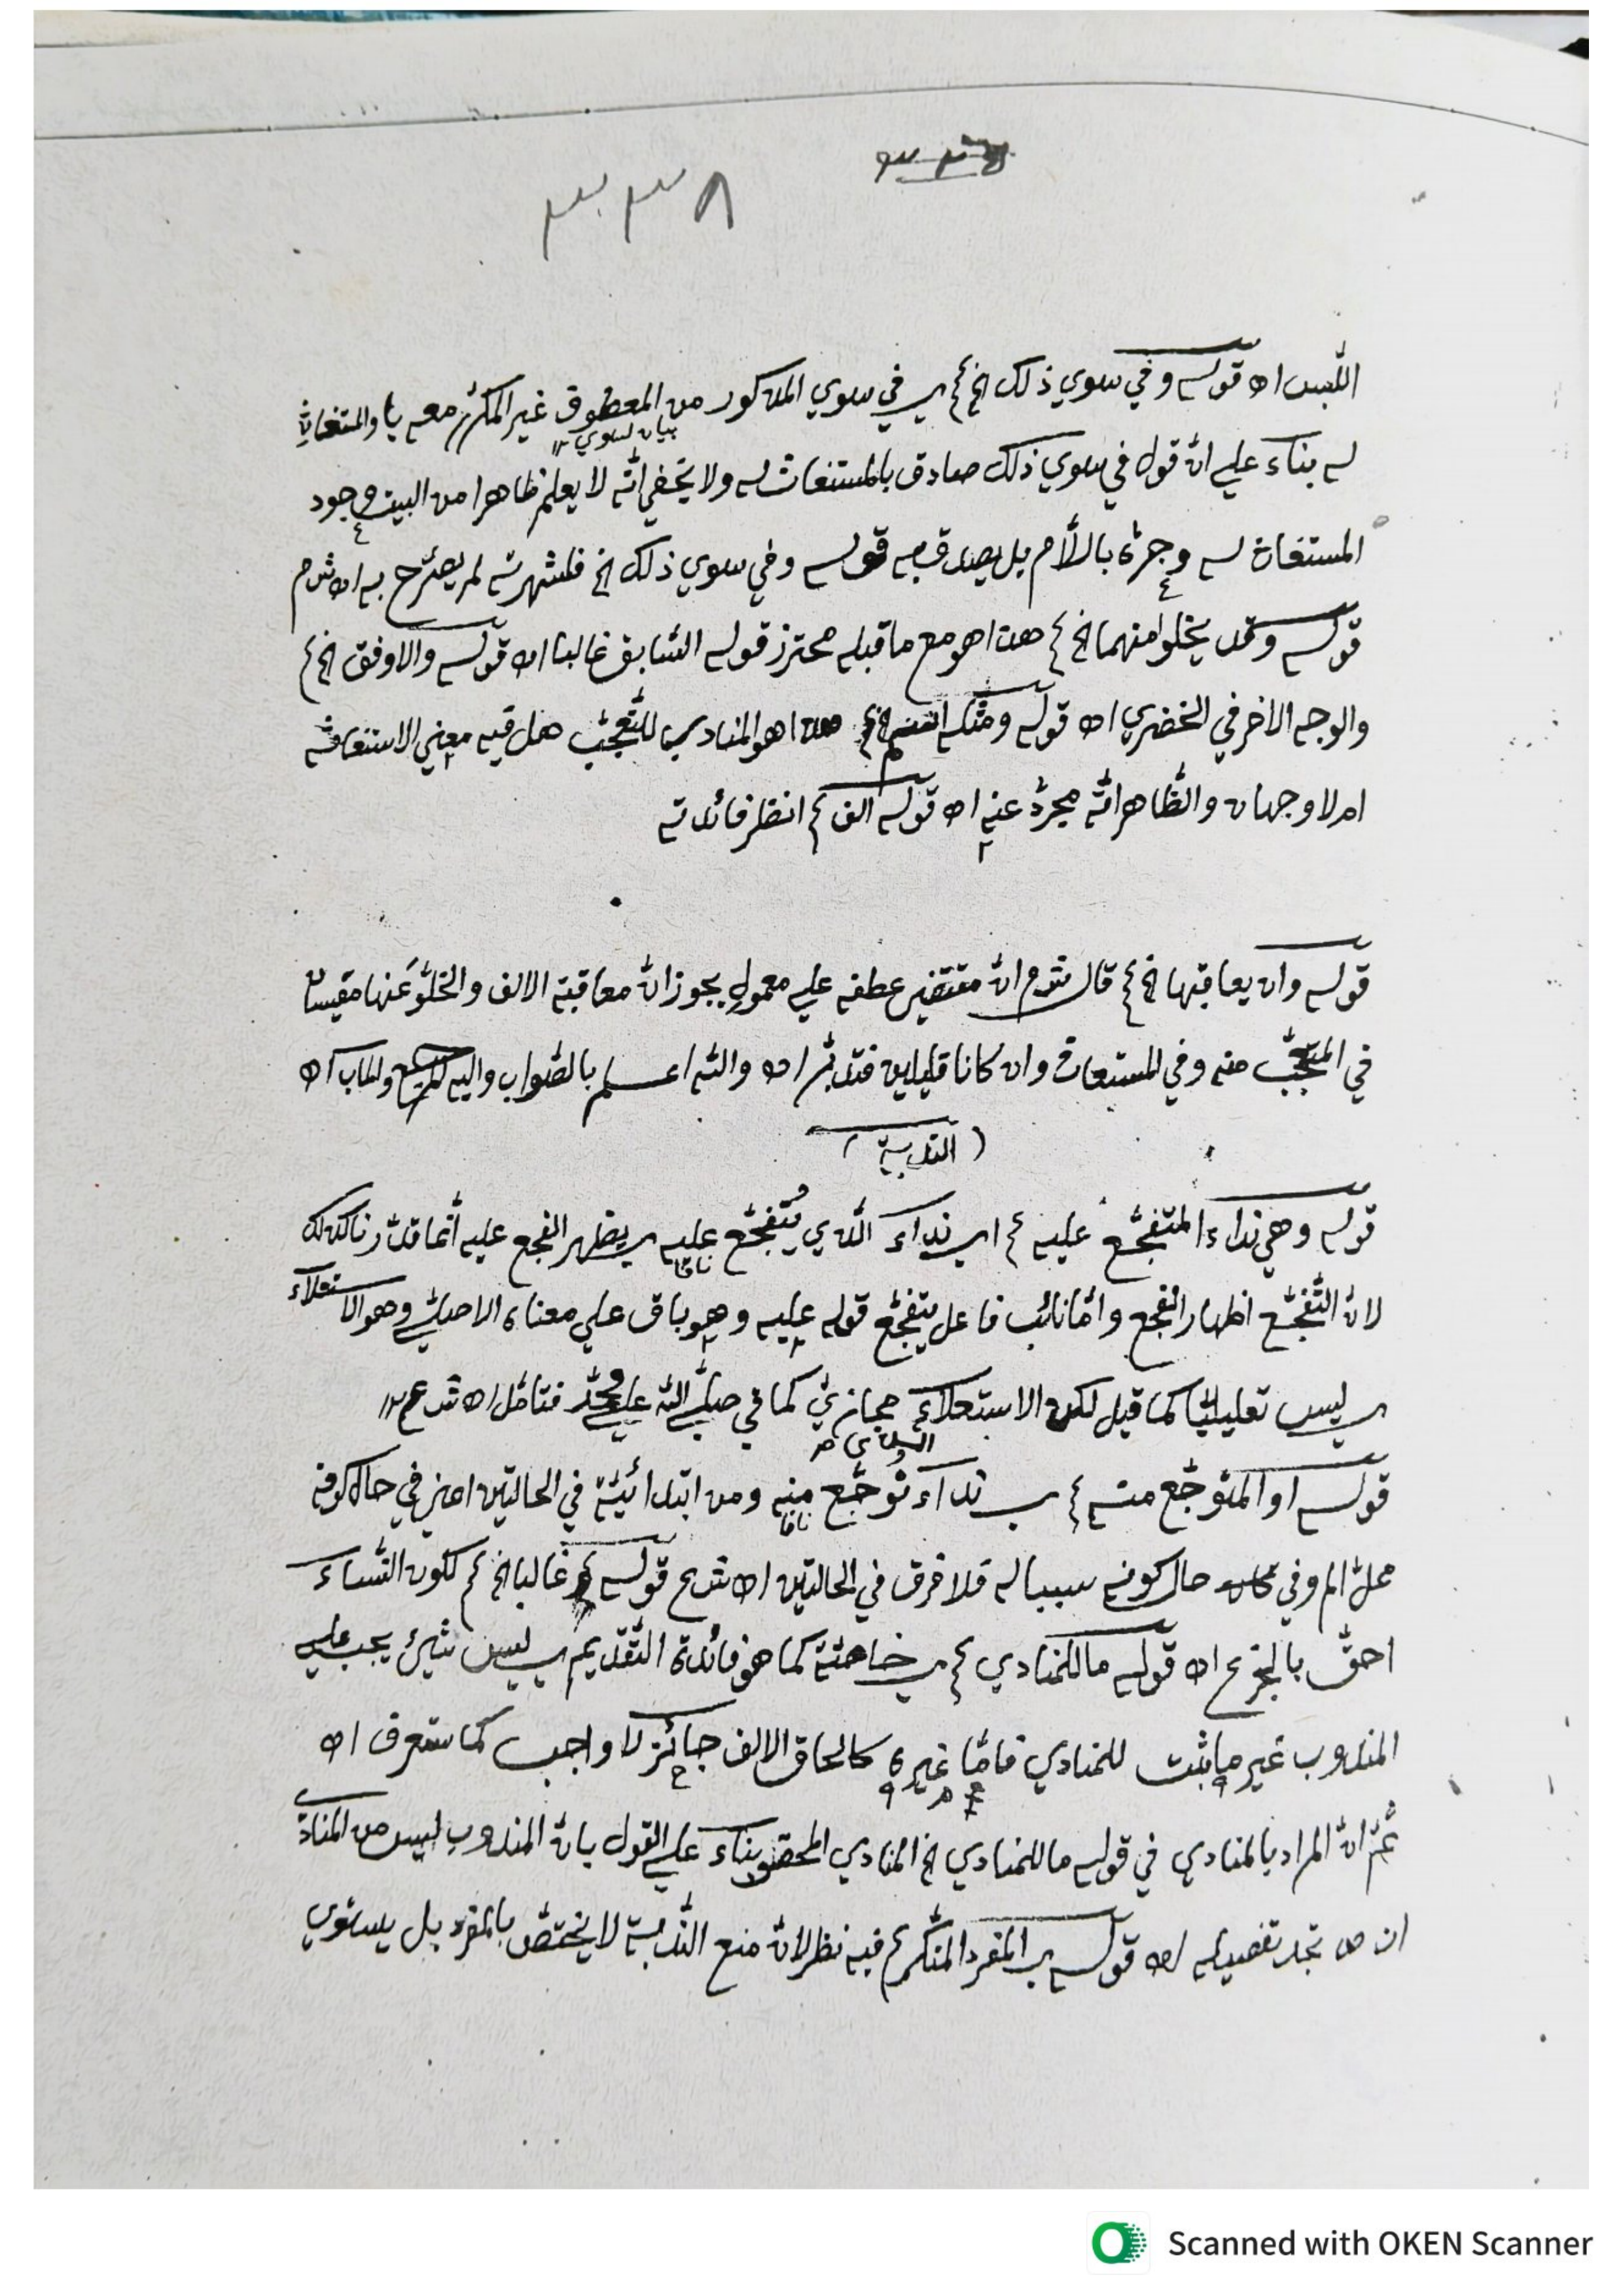 اللبس اه قوله وفي سوي ذلك الخ ع ي في سوي المذكور من المعطوف غير المكرر معه يا والمستغاث
بيان لسوي ١٢
له بناء علي ان قول في سوي ذلك صادق بالمستغاث له ولا يخفي انه لا يعلم ظاهرا من البيت وجود
المستغاث له وجره باللام بل يصدق به قوله وفي سوي ذلك الخ فلشهرته لم يصرح به اه ش م
قوله وقد يخلوا منهما الخ ع هذا هو مع ما قبله محترز قوله السابق غالبا اه قوله والاوفق الخ ع
والوجه الاخر في الخضري اه قوله ومثله اسم الخ ع هذا هو المنادي للتعجب هل فيه معني الاستغاثة
ام لا وجهان والظاهر انه مجرد عنه اه قوله الف ع انظر فائدته
قوله وان يعاقبها الخ ع قال ش م ان مقتضي عطفه علي معمول يجوز ان معاقبة الالف والخلو عنها مقيسان
في المتعجب منه وفي المستغاث وان كانا قليلين فتدبر اه والله اعلم بالصواب واليه المرجع والماب اه
( الندبة )
قوله وهي نداء المتفجع عليه ع اي نداء الذي يتفجع عليه ي يظهر الفجع عليه انما قدرنا كذلك
نافا
لان التفجع اظهار الفجع واما نائب فاعل يتفجع قوله عليه وهو باق علي معناه الاصلي وهو الاستعلاء
ي ليس تعليليا كما قيل لكن الاستعلاء مجازي كما في صلي الله علي محمد فتامل اه ش ع م ١٢
قوله او المتوجع منه ع ي نداء توجع منه ومن ابتدائية في الحالتين اعني في حال كونه
نافا
محل الم وفي حال كونه سببا له فلا فرق في الحالتين اه ش ح قوله غالبا الخ ع لكون النساء
احق بالجزع اه قوله ما للمنادي ع ي خاصة كما هو فائدة التقديم ي ليس شيئ يجب علي
المندوب غير ما يثبت للمنادي فاما غيره كالحاق الالف جائز لا واجب كما ستعرف اه
ثم ان المراد بالمنادي في قوله ما للمنادي الخ المنادي المحض بناء علي القول بان المندوب ليس من المناد
ان ص تجد تفصيله اه قوله ي المفرد المنكر ع فيه نظر لان منع الندبة لا يختص بالمفرد بل يستوي
Scanned with OKEN Scanner